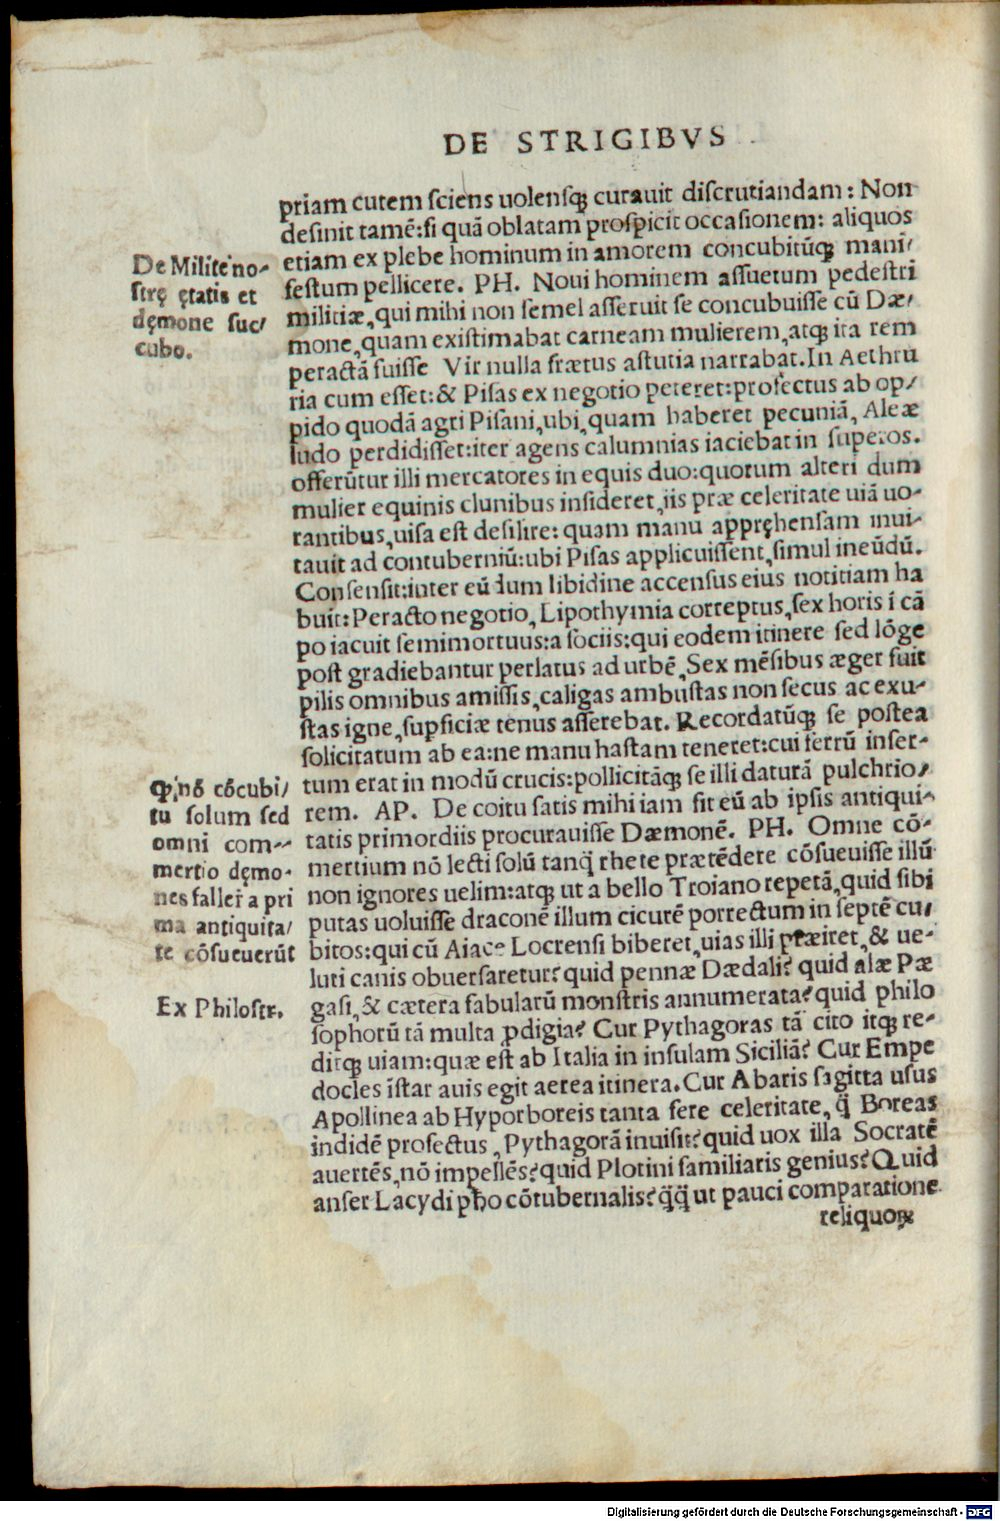 DE STRIGIBVS
priam cutem sciens uolensqꝫ curauit discrutiandam: Non
desinit tamē:si quā oblatam prospicit occasionem: aliquos
etiam ex plebe hominum in amorem concubitūqꝫ mani/
festum pellicere. PH. Noui hominem assuetum pedestri
militiæ, qui mihi non semel asseruit se concubuisse cū Dæ/
mone, quam existimabat carneam mulierem, atqꝫ ita rem
peractā fuisse Vir nulla frætus astutia narrabat. In Aethru
ria cum esset: & Pisas ex negotio peteret: profectus ab op/
pido quodā agri Pisani, ubi, quam haberet pecuniā, Aleæ
ludo perdidisset: iter agens calumnias iaciebat in superos.
offerūtur illi mercatores in equis duo: quorum alteri dum
mulier equinis clunibus insideret, iis præ celeritate uiā uo-
rantibus, uisa est desilire: quam manu appręhensam inui-
tauit ad contuberniū: ubi Pisas applicuissent, simul ineūdū.
Consensit: inter eūdum libidine accensus eius notitiam ha
buit: Peracto negotio, Lipothymia correptus, sex horis ī cā
po iacuit semimortuus: a sociis: qui eodem itinere sed lōge
post gradiebantur perlatus ad urbē, Sex mēsibus æger fuit
pilis omnibus amissis, caligas ambustas non secus ac exu-
stas igne, supficiæ tenus asserebat. Recordatūqꝫ se postea
solicitatum ab ea: ne manu hastam teneret: cui ferrū inser-
tum erat in modū crucis: pollicitāqꝫ se illi daturā pulchrio/
rem. AP. De coitu satis mihi iam fit eū ab ipsis antiqui-
tatis primordiis procurauisse Dæmonē. PH. Omne cō-
mertium nō lecti solū tanq̄ rhete prætēdere cōsueuisse illū
non ignores uelim: atqꝫ ut a bello Troiano repetā, quid sibi
putas uoluisse draconē illum cicurē porrectum in septē cu/
bitos: qui cū Aiace Locrensi biberet, uias illi præiret, & ue-
luti canis obuersaretur? quid pennæ Dædali? quid alæ Pæ
gasi, & cætera fabularū monstris annumerata? quid philo
sophorū tā multa ꝓdigia? Cur Pythagoras tā cito itqꝫ re-
ditqꝫ uiam: quæ est ab Italia in insulam Siciliā? Cur Empe
docles īstar auis egit aerea itinera. Cur Abaris sagitta usus
Apollinea ab Hyporboreis tanta fere celeritate, q̄ Boreas
indidē profectus, Pythagorā inuisit? quid uox illa Socratē
auertēs, nō impellēs? quid Plotini familiaris genius? Quid
anser Lacydi pħo cōtubernalis? q̄q̄ ut pauci comparatione
reliquoꝝ
De Milite no-
strę ętatis et
dęmone suc/
cubo.
Ꝙ nō cōcubi/
tu solum sed
omni com-
mertio dęmo-
nes fallere a pri
ma antiquita/
te cōsueuerūt
Ex Philostr.
Digitalisierung gefördert durch die Deutsche Forschungsgemeinschaft - DFG